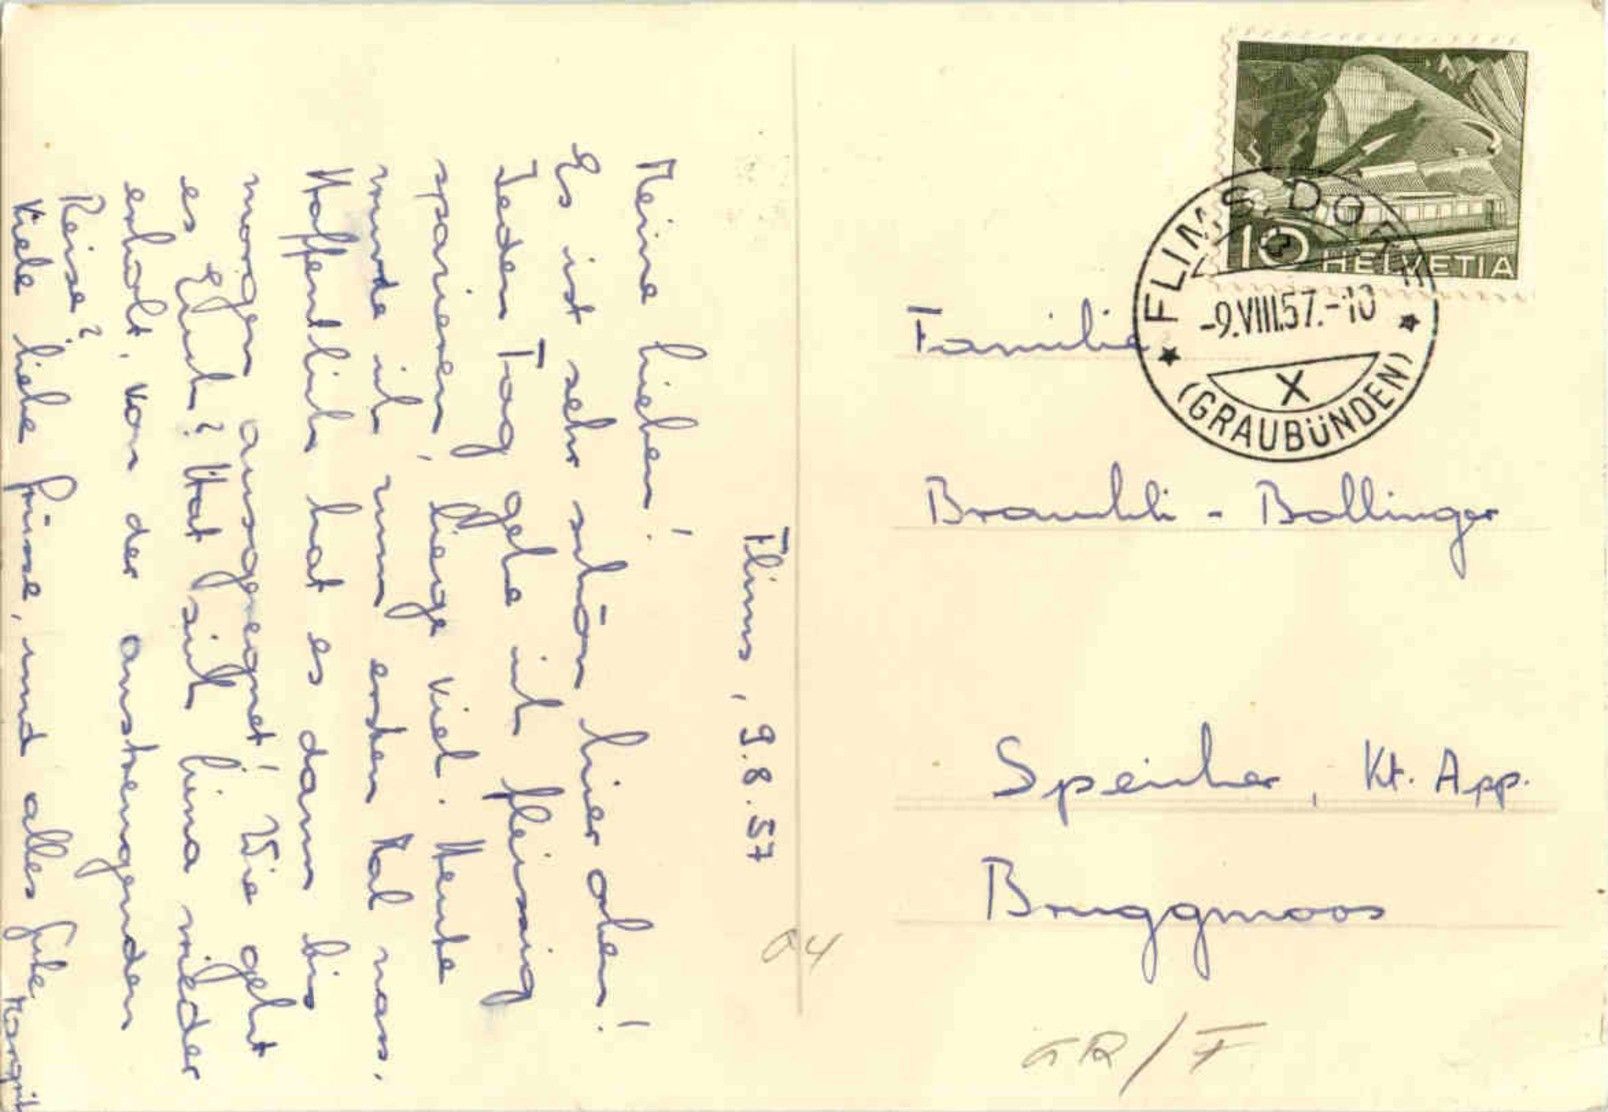 Flims, 9.8.57
Meine Lieben!
Es ist sehr schön hier oben!
Jeden Tag gehe ich fleissig
spazieren, liege viel. Heute
wurde ich zum ersten Mal nass.
Hoffentlich hat es dann bis
morgen ausgeregnet! Wie geht
es Euch? Hat sich Lina wieder
erholt, von der anstrengenden
Reise?
Viele liebe Grüsse, und alles Gute
Margrit
10
HELVETIA
FLIMS DORF
-9.VIII.57.-10
X
(GRAUBÜNDEN)
Familie
Brauchli - Bollinger
Speicher, Kt. App.
Bruggmoos
04
GR/F